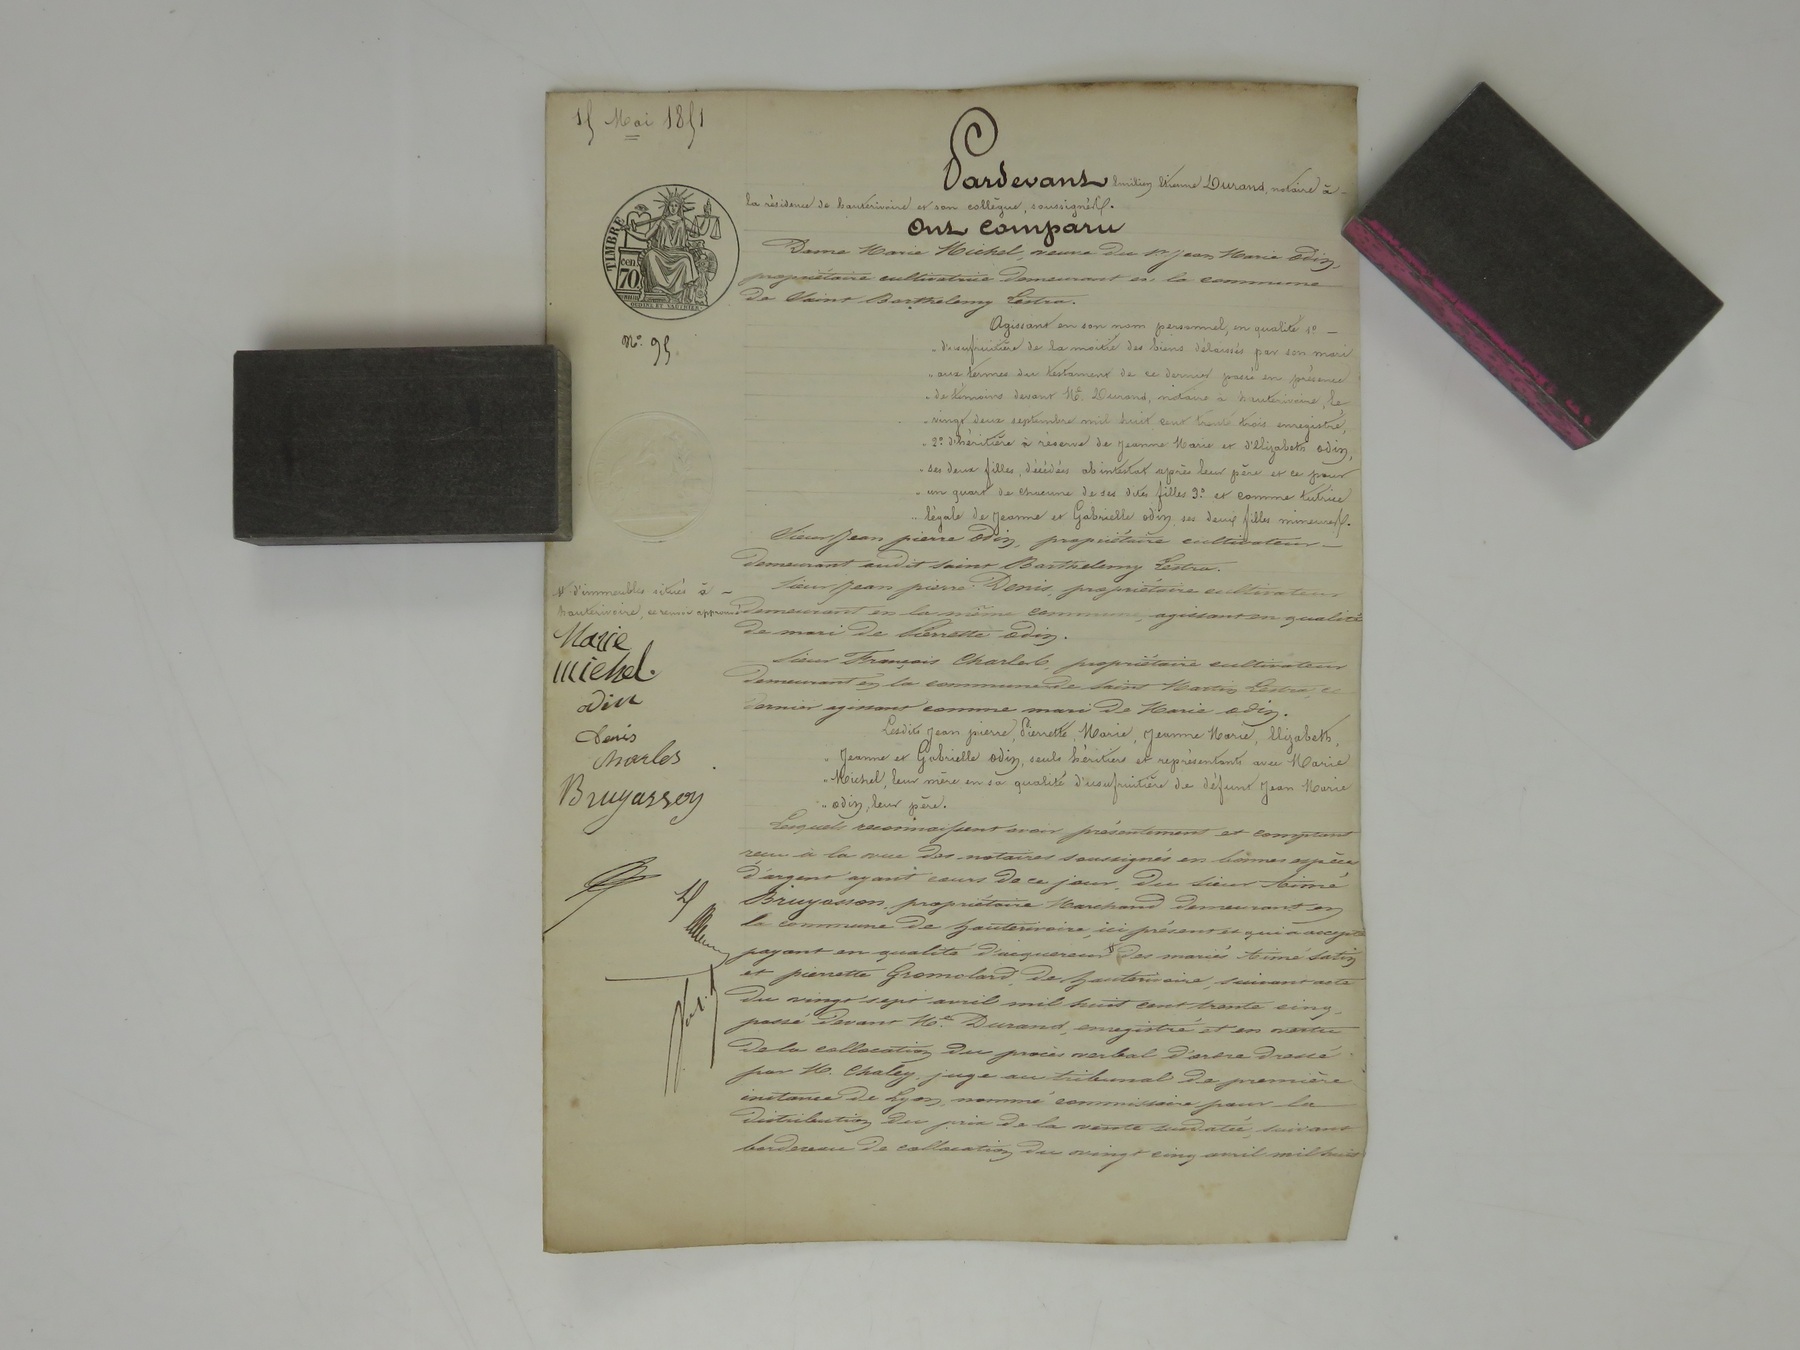 15 Mai 1851
Pardevant Emilien Etienne Durand, notaire à
la résidence de hauterivoire et son collègue, soussignés.
Ont comparu
Dame Marie Michel, veuve du Sr Jean Marie Odin,
propriétaire cultivatrice demeurant en la commune
de Saint Barthelemy Lestra.
Agissant en son nom personnel, en qualité 1o
d'usufruitière de la moitié des biens délaissés par son mari
aux termes du testament de ce dernier passé en présence
de témoins devant Me Durand, notaire à hauterivoire, le
vingt deux septembre mil huit cent trente trois enregistré,
2o d'héritière à réserve de Jeanne Marie et d'Elizabeth Odin,
ses deux filles, décédés ab intestat après leur père et ce pour
un quart de chacune de ses dites filles 3o et comme tutrice
légale de Jeanne et Gabrielle Odin, ses deux filles mineures.
Sieur Jean pierre Odin, propriétaire cultivateur
demeurant audit Saint Barthelemy Lestra.
Sieur Jean pierre Denis, propriétaire cultivateur
demeurant en la même commune, agissant en qualité
de mari de Pierrette Odin.
Sieur François Charles, propriétaire cultivateur
demeurant en la commune de Saint Martin Lestra, ce
dernier agissant comme mari de Marie Odin.
Lesdits Jean pierre, Pierrette, Marie, Jeanne Marie, Elizabeth,
Jeanne et Gabrielle Odin, seuls héritiers et représentants avec Marie
Michel, leur mère en sa qualité d'usufruitière de défunt Jean Marie
Odin, leur père.
Lesquels reconnaissent avoir présentement et comptant
reçu à la vue des notaires soussignés en bonnes espèces
d'argent ayant cours de ce jour, du sieur Aimé
Bruyasson, propriétaire Marchand demeurant en
la commune de hauterivoire, ici présent et qui a accepté
payant en qualité d'acquereur des mariés Aimé
et pierrette Gromolard, de hauterivoire, suivant acte
du vingt sept avril mil huit cent trente cinq,
passé devant Me Durand, enregistré et en vertu
de la collocation du procès verbal d'ordre dressé
par M. Chaley, juge au tribunal de première
instance de Lyon, nommé commissaire pour la
distribution du prix de la vente susdatée, suivant
bordereau de collocation du vingt cinq avril mil huit
TIMBRE
cen.
70
No 95
d'immeubles situés à
hauterivoire, ce renvoi approuvé
Marie
Michel
odin
Denis
Charles
Bruyasson